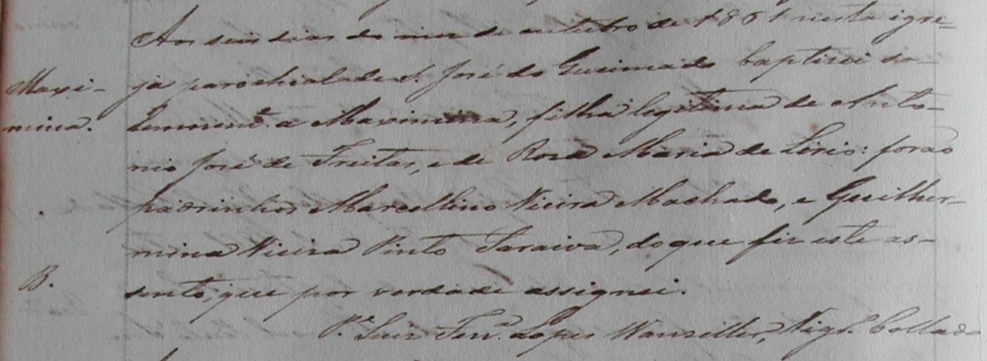 Aos seis dias do mez de outubro de 1861 nesta igre-
Maxi- ja parochial de S. José do Queimado baptizei so-
mina. lemnemte. a Maximina, filha legitima de Anto-
nio José de Freitas, e de Rosa Maria de Lirio: forão
padrinhos Marcellino Vieira Machado, e Guilher-
mina Vieira Pinto Saraiva, do que fiz este as-
B. sento, que por verdade assignei.
Pe. Luiz Lopes Wanzeller, Vigr. Collad